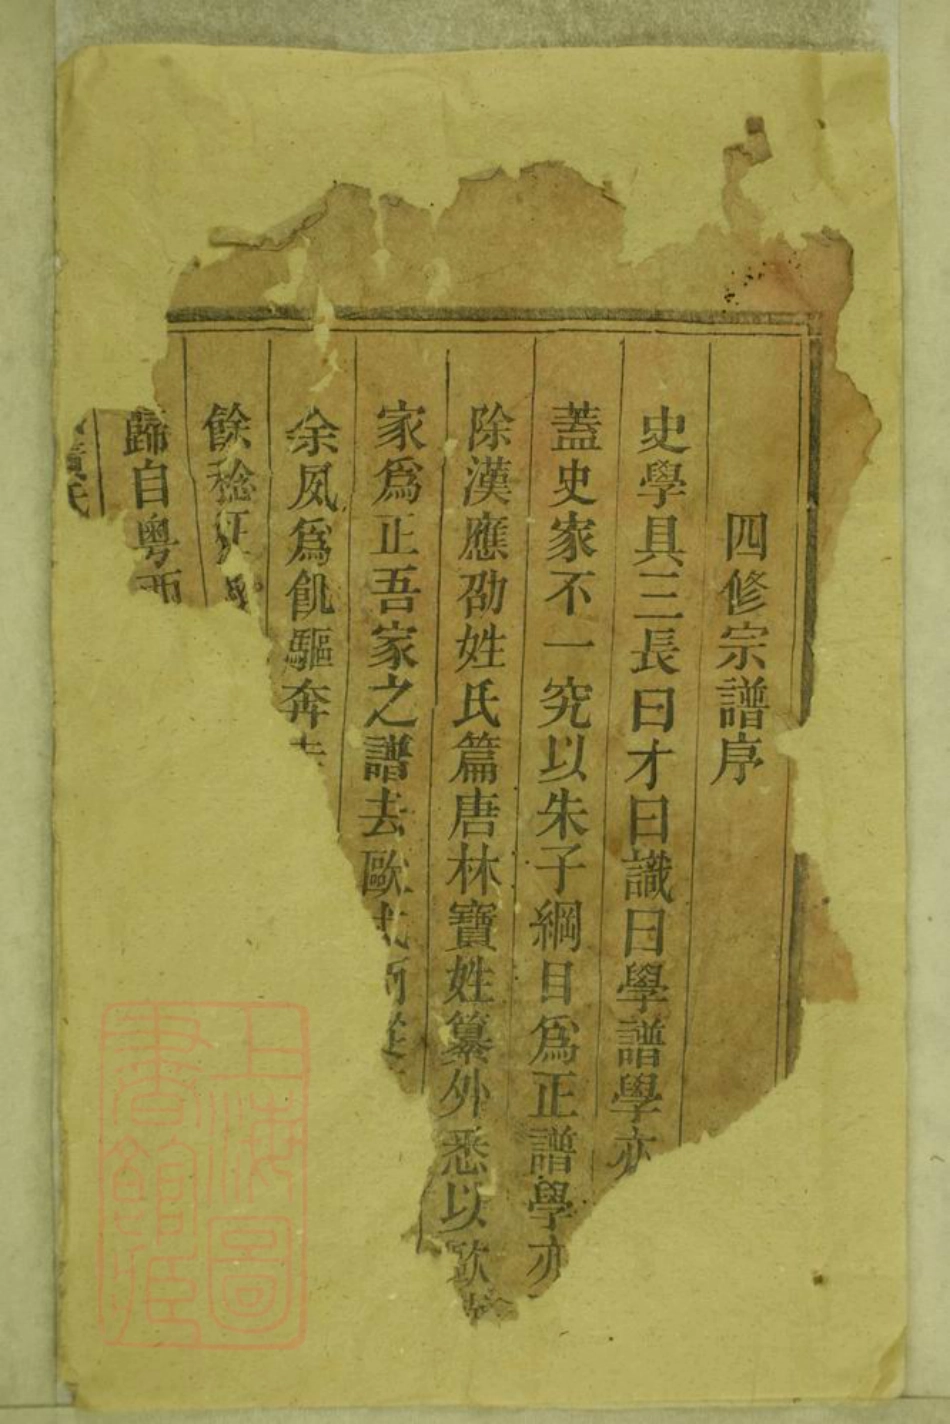 四修宗譜序
史學具三長曰才曰識曰學譜學亦
蓋史家不一究以朱子綱目爲正譜學亦
除漢應劭姓氏篇唐林寶姓纂外悉以歐
家爲正吾家之譜去歐
余夙爲飢驅奔走
餘稔
歸自粵西
上海圖
書館藏